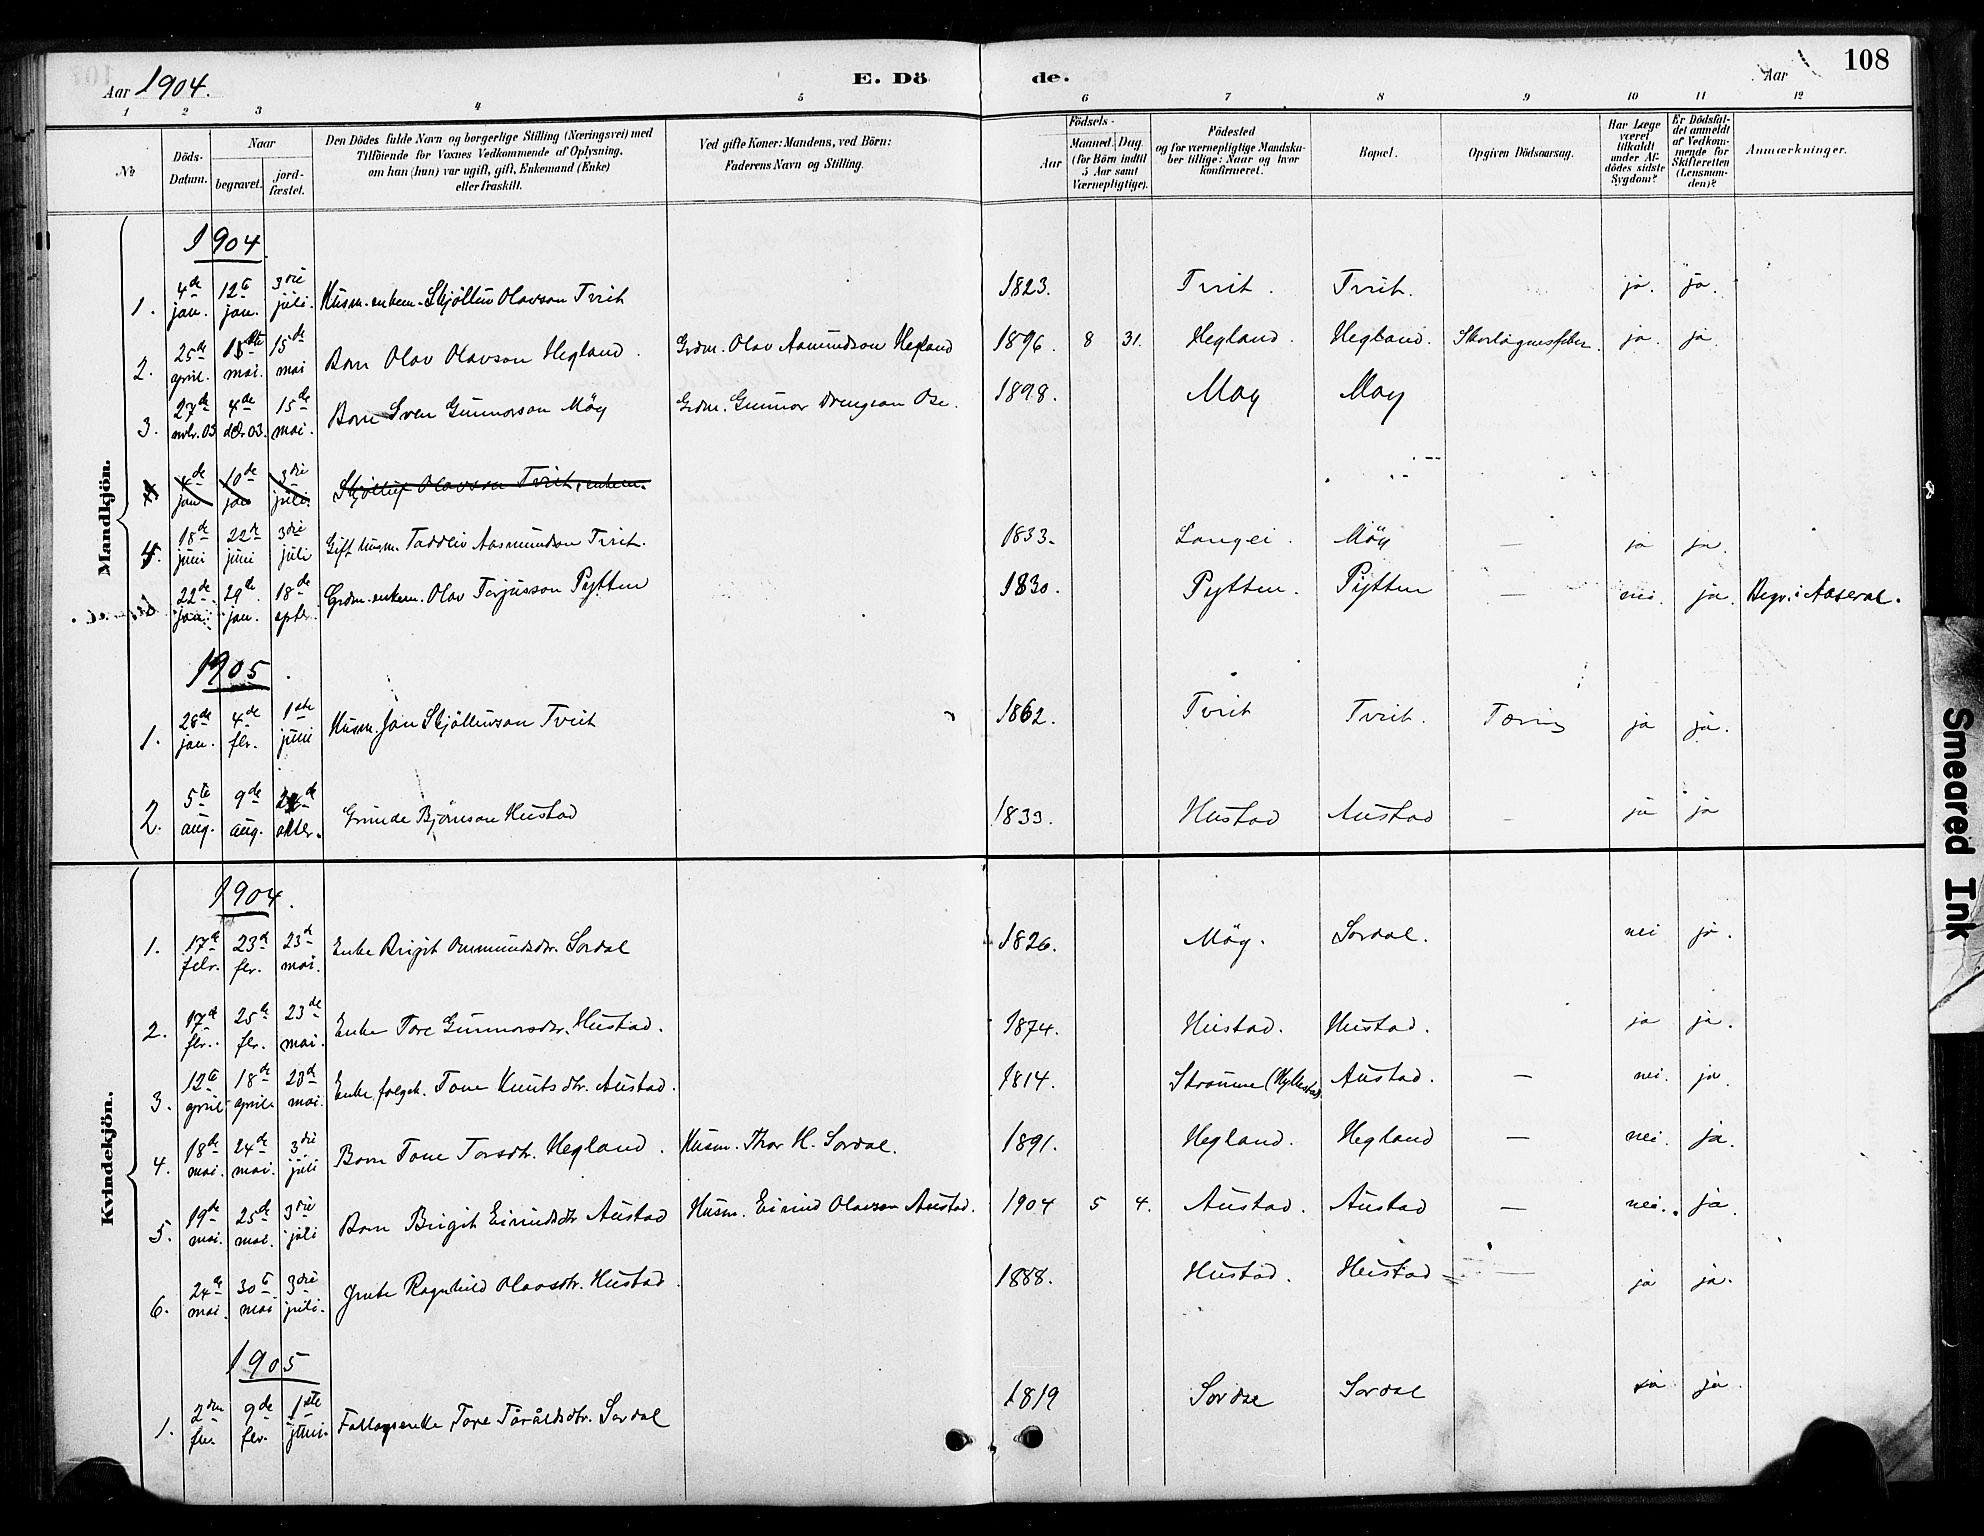 Aar 1904.
E. Dö de.
Aar
108
1 2 3 4 5 6 7 8 9 10 11 12
No
Döds-Datum.
Naar
begravet.
jordfæstet.
Den Dödes fulde Navn og borgerlige Stilling (Næringsvei) med Tilföiende for Voxnes Vedkommende af Oplysning, om han (hun) var ugift, gift, Enkemand (Enke) eller fraskilt.
Ved gifte Koner: Mandens, ved Börn: Faderens Navn og Stilling.
Födsels-
Aar
Maaned. Dag.
(for Börn indtil 5 Aar samt Værnepligtige).
Födested og for værnepligtige Mandskaber tillige: Naar og hvor konfirmeret.
Bopæl.
Opgiven Dödsaarsag.
Har Læge været tilkaldt under Afdödes sidste Sygdom?
Er Dödsfaldet anmeldt af Vedkommende for Skifteretten (Lensmanden)?
Anmærkninger.
Mandkjön.
1904
1. 4de jan. 12te jan. 3die juli. Husm. enkem. Skjöllur Olavson Tvrit 1823. Tvrit. Tvrit. ja. ja.
2. 25de april. mai. 15de mai Barn Olav Olavson Hegland. Grdm. Olav Aamundson Hegland 1896. 8 31. Hegland. Hegland. ja. ja
3. 27de nvbr. 03 4de 03. 15de mai. Barn Sven Gunnarson Möy Grdm. Gunnar Drengson Ose. 1898. May May
4 4de jan 10de jan 3die juli. Skjölluf Olavson Tvrit, enkem.
4. 18de juni 22de juni 3die juli Gift husm. Taddeiv Aasmundson Tvrit. 1833. Langei. Möy — ja ja.
22de jan. 29de jan. 18de sptbr. Grdm. enkem. Olav Terjusson Pytten 1830. Pytten. Pytten — nei. ja. Begr. i Aaseral.
1905
1. 26de jan. 4de fbr. 1ste juni Husm. Jon Skjöllurson Tvrit 1862. Tvrit Tvrit. Tæring ja ja.
2. 5te aug. 9de aug. oktbr. Grunde Björnson Hustad 1833. Hustad Austad – ja ja
Kvindekjön.
1904.
1. 17de febr. 23de fbr. 23de mai. Enke Birgit Ommundsdtr. Sordal 1826. Möy. Sordal. nei ja.
2. 17de fbr. 25de fbr. 23de mai. Enke Tore Gunnarsdtr. Hustad. 1874. Hustad. Hustad. ja ja.
3. 12te april 18de april 23de mai. Enke folgek. Tone Knutsdtr. Austad. 1814. Straume (Hyllestad) Austad. — nei. ja.
4. 18de mai. 24de mai. 3die juli Barn Tone Torsdtr. Hegland. Husm. Thor H. Sordal. 1891. Hegland. Hegland — nei. ja.
5. 19de mai. 25de mai. 3die juli Barn Birgit Eivindsdtr Austad Husm. Eivind Olavson Austad. 1904 5 4. Austad. Austad — nei. ja.
6. 24de mai. 30te mai 3die juli. Jente Ragnhild Olavsdtr. Hustad. 1888. Hustad. Hustad — ja ja.
1905
1. 2den fbr. 9de fbr. 1ste juni. Tore Taraldsdtr. Sordal 1819 Sordal Sordal ja ja.
Smeared Ink